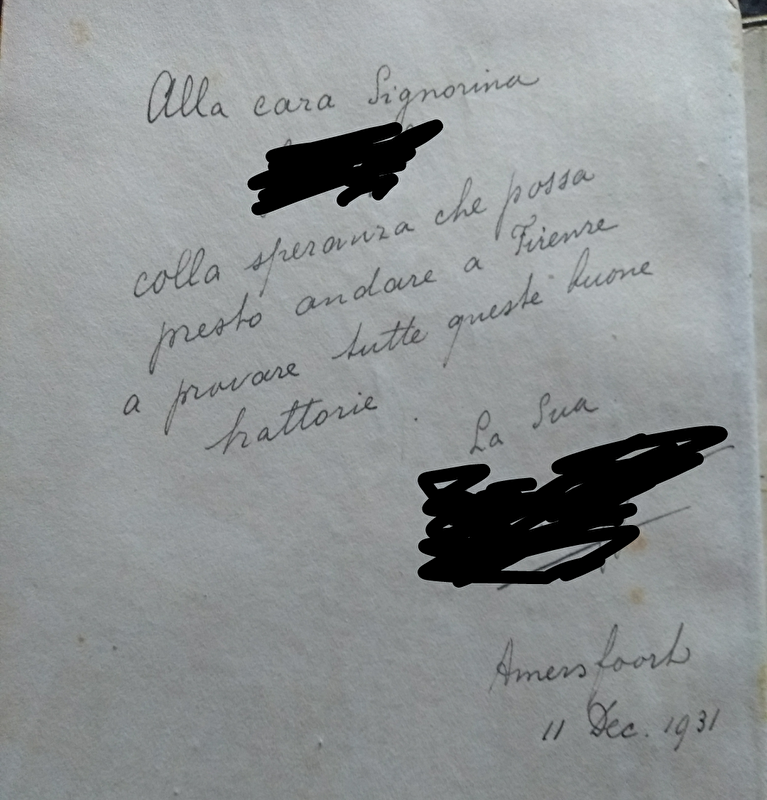 Alla cara Signorina
colla speranza che possa
presto andare a Firenze
a provare tutte queste buone
trattorie.
La Sua
Amersfoort
11 Dec. 1931